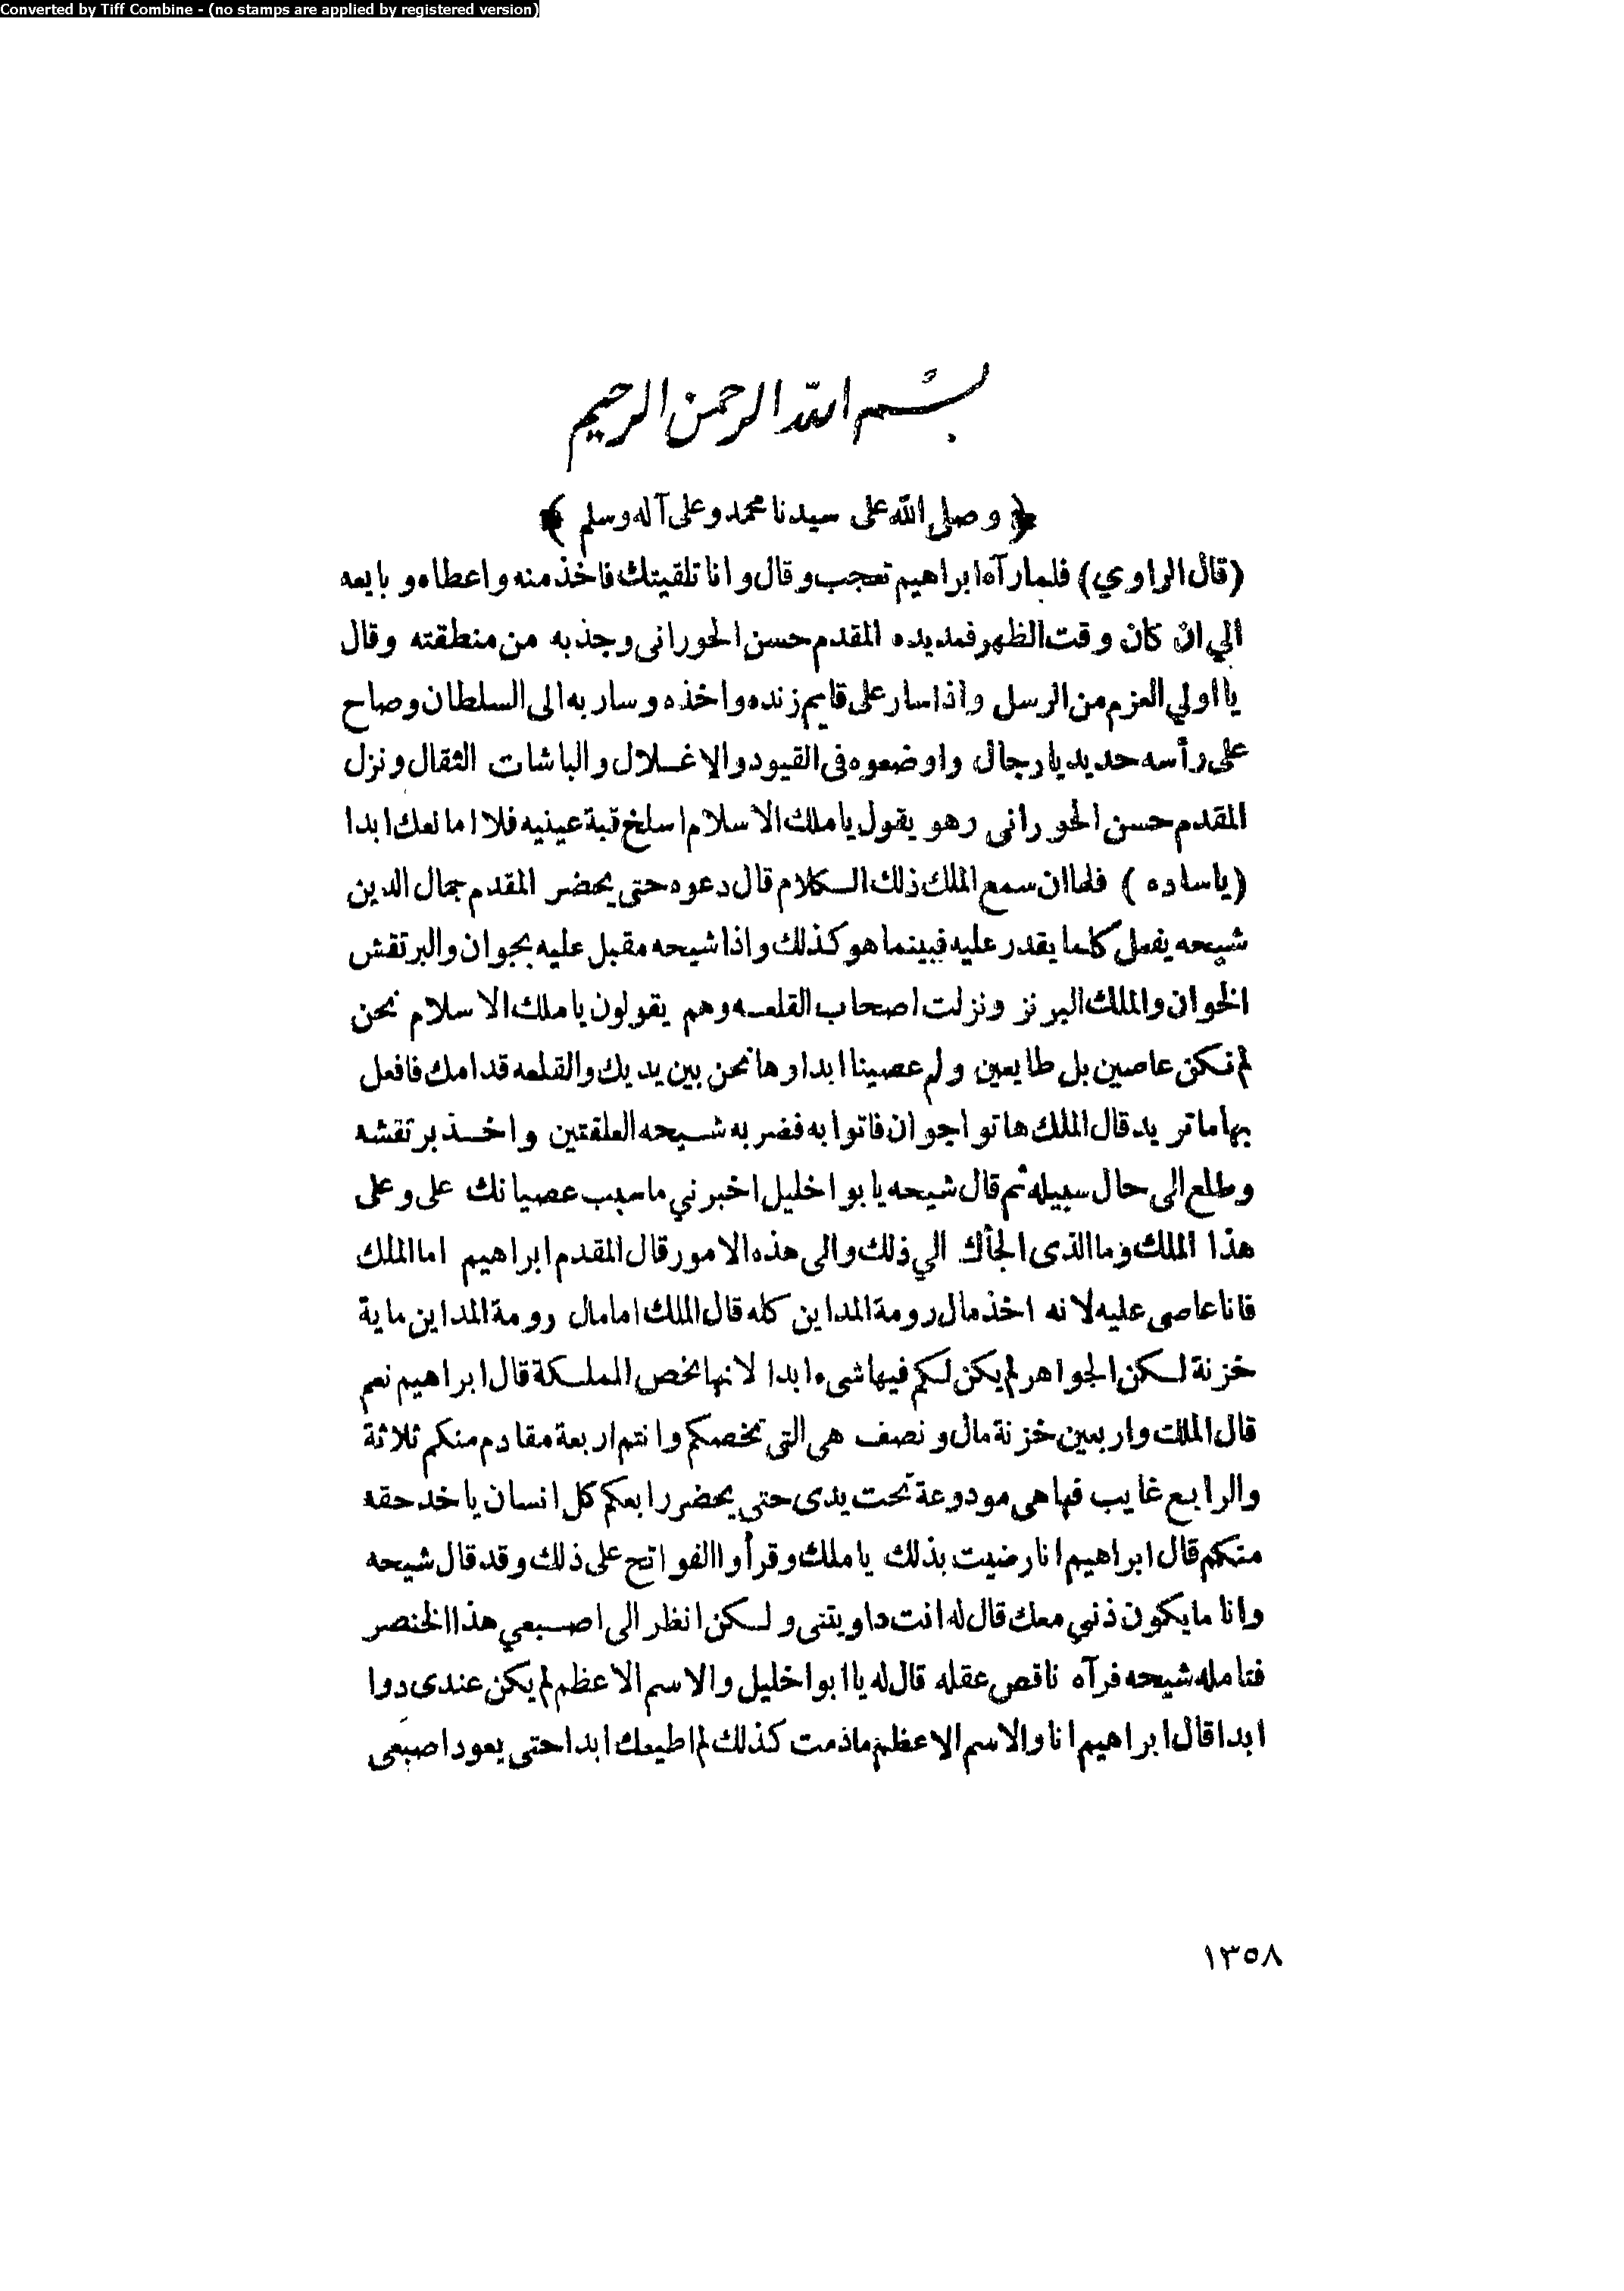 Converted by Tiff Combine - (no stamps are applied by registered version)
بسم الله الرحمن الرحيم
﴿ وصلى الله على سيدنا محمد وعلى آله وسلم ﴾
(قال الراوي) فلما رآه ابراهيم تعجب وقال وانا تلقيتك فاخذ منه واعطاه وبايعه
الي ان كان وقت الظهر فمد يده المقدم حسن الحوراني وجذبه من منطقته وقال
يا اولي العزم من الرسل واذا سار على قايم زنده واخذه وسار به الى السلطان وصاح
على رأسه حديد يا رجال واوضعوه فى القيود والاغلال والباشات الثقال ونزل
المقدم حسن الحورانى وهو يقول يا ملك الاسلام اسلخ قبة عينيه فلا امالعك ابدا
(ياساده) فلما ان سمع الملك ذلك الكلام قال دعوه حتى يحضر المقدم جمال الدين
شيحه يفعل كلما يقدر عليه فبينما هو كذلك واذا شيحه مقبل عليه بجوان والبرتقش
الخوان والملك البرنز ونزلت اصحاب القلعه وهم يقولون يا ملك الاسلام نحن
لم نكن عاصين بل طايعين ولم عصينا ابدا وها نحن بين يديك والقلعه قدامك فافعل
بها ما تريد قال الملك هاتوا جوان فاتوا به فضربه شيحه العلقتين واخذ برتقشه
وطلع الى حال سبيله ثم قال شيحه يابوا خليل اخبرني ما سبب عصيانك على وعلى
هذا الملك وما الذى الجأك الي ذلك والى هذه الامور قال المقدم ابراهيم اما الملك
فانا عاصى عليه لانه اخذ مال رومة المداين كله قال الملك اما مال رومة المداين ماية
خزنة لكن الجواهر لم يكن لكم فيها شىء ابدا لانها تخص المملكة قال ابراهيم نعم
قال الملك واربعين خزنة مال ونصف هى التى تخصكم وانتم اربعة مقادم منكم ثلاثة
والرابع غايب فهاهى مودوعة تحت يدى حتى يحضر رابعكم كل انسان ياخد حقه
منكم قال ابراهيم انا رضيت بذلك يا ملك وقرأوا الفواتح على ذلك وقد قال شيحه
وانا ما يكون ذنبي معك قال له انت داويتنى ولكن انظر الى اصبعي هذا الخنصر
فتامله شيحه فرآه ناقص عقله قال له يا ابوا خليل والاسم الاعظم لم يكن عندى دوا
ابدا قال ابراهيم انا والاسم الاعظم ماذمت كذلك لم اطيعك ابدا حتى يعود اصبعى
١٣٥٨